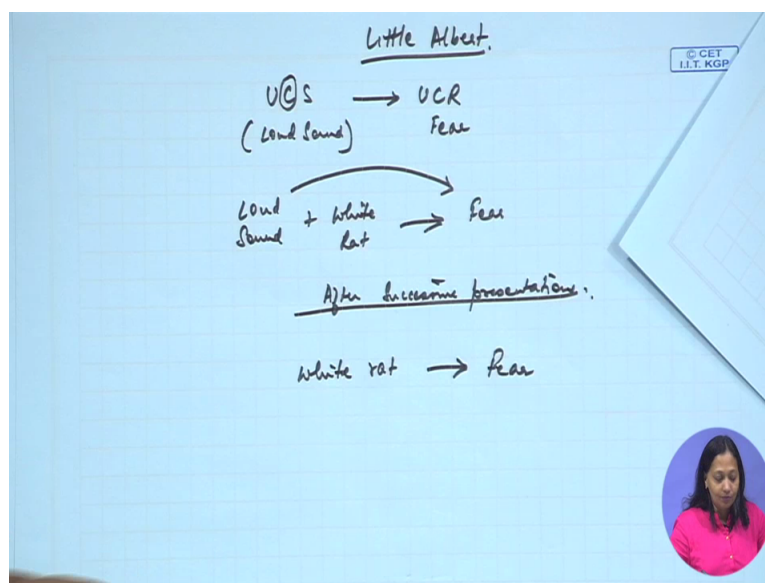 Little Albert.
© CET
I.I.T. KGP
UCS → UCR
(Loud Sound) Fear
Loud Sound + White Rat → Fear
After Successive presentations.
White rat → Fear